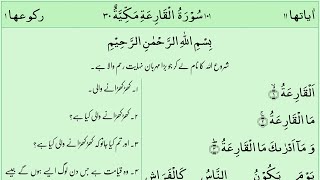 اٰیاتھا ۱۱ ۱۰۱ سُوْرَۃُ الْقَارِعَۃِ مَکِّیَّۃٌ ۳۰ رکوعھا ۱
بِسْمِ اللّٰهِ الرَّحْمٰنِ الرَّحِیْمِ
شروع اللہ کا نام لے کر جو بڑا مہربان نہایت رحم والا ہے۔
اَلْقَارِعَۃُ ۙ﴿۱﴾ ۱۔ کھڑکھڑانے والی۔
مَا الْقَارِعَۃُ ۚ﴿۲﴾ ۲۔ کھڑکھڑانے والی کیا ہے؟
وَ مَاۤ اَدْرٰىكَ مَا الْقَارِعَۃُ ؕ﴿۳﴾ ۳۔ اور تم کیا جانو کہ کھڑکھڑانے والی کیا ہے؟
یَوْمَ یَكُوْنُ النَّاسُ كَالْفَرَاشِ ۴۔ وہ قیامت ہے جس دن لوگ ایسے ہوں گے جیسے